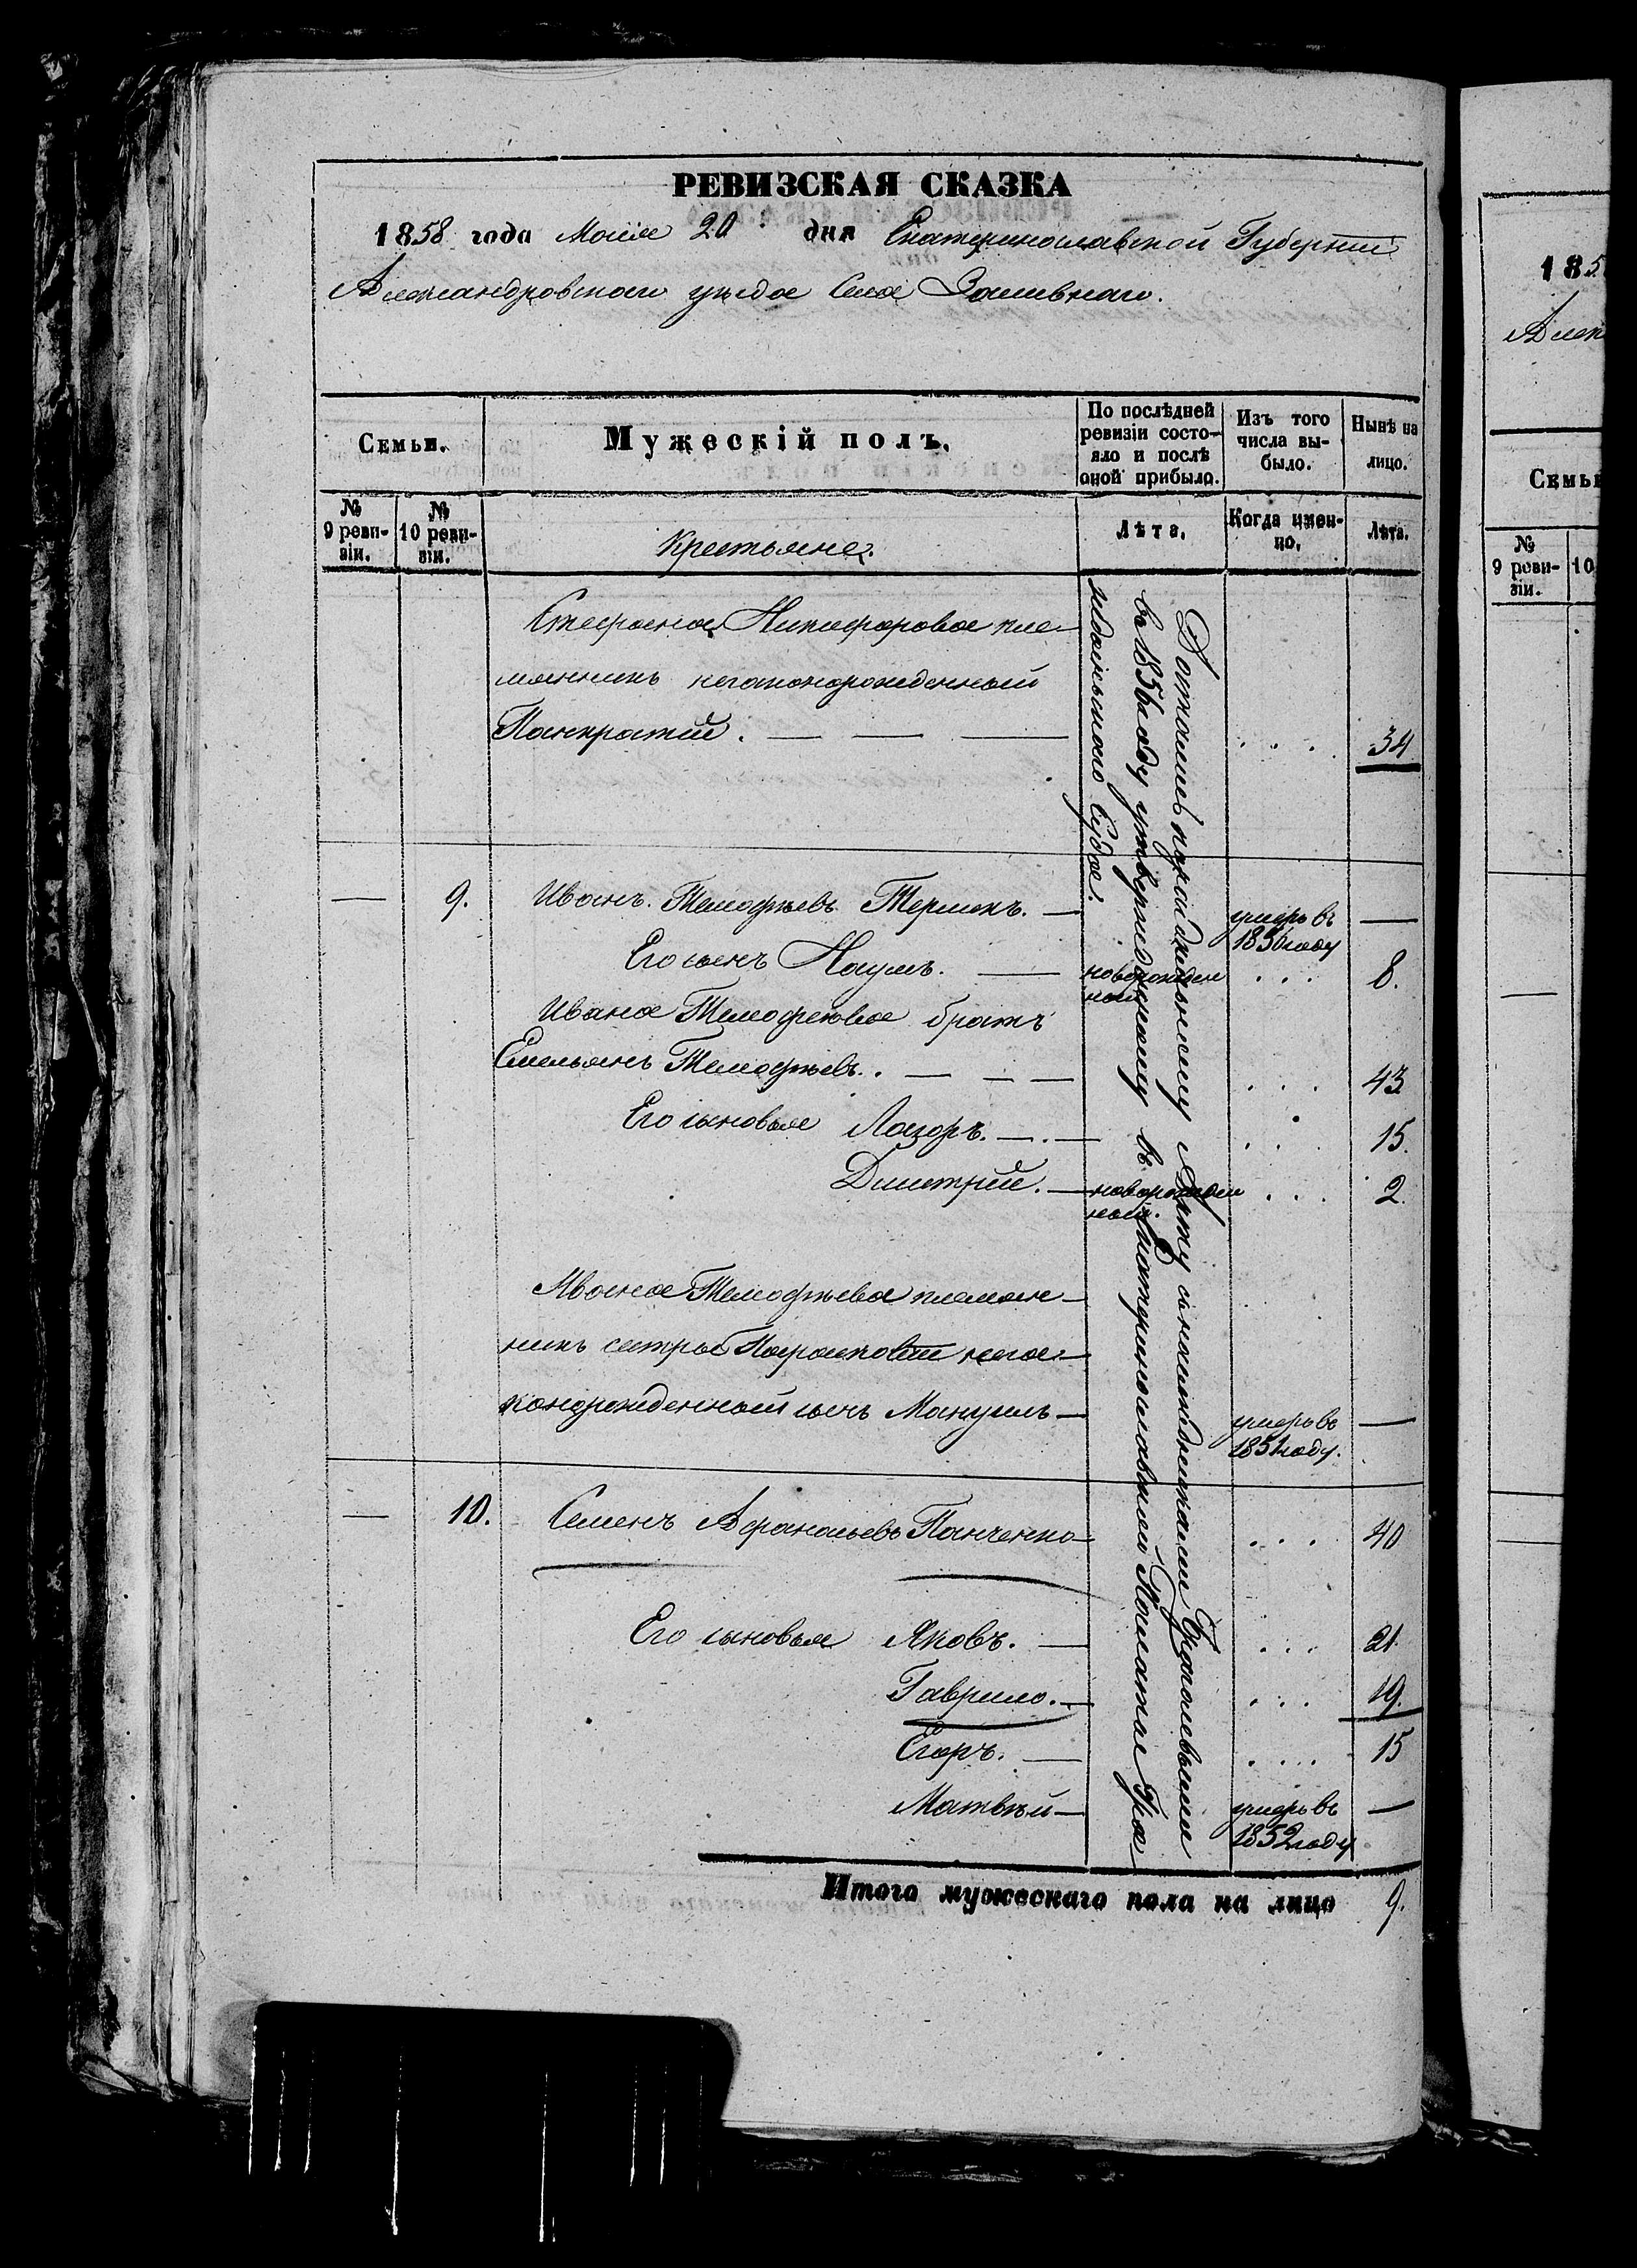 РЕВИЗСКАЯ СКАЗКА
1858 года Маія 20 дня Екатеринославской Губерніи
Александровскаго уѣзда Села Заливнаго.
Семьи.
Мужескій полъ.
По послѣдней ревизіи состояло и послѣ оной прибыло.
Изъ того числа выбыло.
Нынѣ на лицо.
№ 9 ревизіи.
№ 10 ревизіи.
Крестьяне.
Лѣта.
Когда имен-но.
Лѣта.
Стефана Никифорова пле-
мянникъ незаконорожденный
Панкратій. — — — . . . 34
— 9. Иванъ Тимофѣевъ — умеръ въ 1856 году —
Его сынъ Наумъ. — новорожденный . . . 8.
Ивана Тимофеева братъ
Емельянъ Тимофѣевъ. . — — — . . . 43
Его сыновья Лазоръ. — . — . . . 15.
Дмитрій. — новорожденный. . . . 2.
Ивана Тимофѣева племян-
никъ сестры Парасковіи неза-
конорожденный сынъ Мануилъ — умеръ въ 1851 году. —
— 10. Семенъ Афанасьевъ Панченко — . . . 40
Его сыновья Яковъ. — . . . 21.
Гаврило. — . . . 19.
Егоръ. — . . . . 15
Матвѣй — умеръ въ 1852 году —
Достались по раздѣльному Акту съ наслѣдниками
въ 1856 году утвержденному въ Екатеринославской Палатѣ Гра-
жданскаго Суда.
Итого мужескаго пола на лицо 9.
185
Алек
Семьи
№ 9 ревизіи.
10